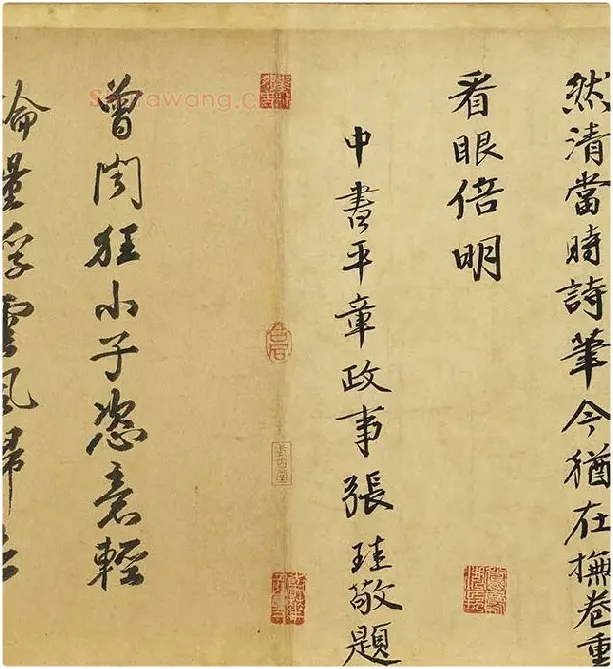 然清當時詩筆今猶在撫卷重
看眼倍明
中書平章政事張珪敬題
曾聞狂小子恣意輕
量雲風